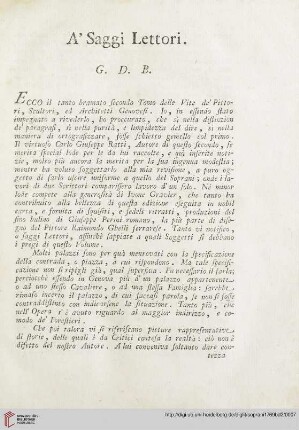 A' Saggi Lettori.
G. D. B.
ECCO il tanto bramato secondo Tomo delle Vite de' Pitto-
ri, Scultori, ed Architetti Genovesi. Io, in essendo stato
impegnato a rivederlo, ho procurato, che sì nella distinzion
de' paragrafi, sì nella purità, e limpidezza del dire, sì nella
maniera di ortografizzare, fosse schietto gemello col primo.
Il virtuoso Carlo Giuseppe Ratti, Autore di questo secondo, se
merita special lode per le da lui raccolte, e quì inserite noti-
zie, molto più ancora la merita per la sua ingenua modestia;
mentre ha voluto soggettarlo alla mia revisione, a puro og-
getto di farlo uscire uniforme a quello del Soprani; onde i la-
vori di due Scrittori comparissero lavoro d'un solo. Nè mino-
lode compete alla generosità di Ivone Gravier, che tanto ha
contribuito alla bellezza di questa edizione eseguita in nobil
carta, e fornita di squisiti, e fedeli ritratti, produzioni del
fino bulino di Giuseppe Perini romano, la più parte su dise-
gno del Pittore Raimondo Ghelli ferrarese. Tanto vi notifico,
o saggi Lettori, affinchè sappiate a quali Soggetti si debbano
i pregi di questo Volume.
Molti palazzi sono per quà mentovati con la specificazione
della contrada, o piazza, a cui rispondono. Ma tale specifi-
cazione non si repliti già, qual superflua. Fu necessario il farla;
perciocchè essendo in Genova più d'un palazzo appartenente
o ad uno stesso Cavaliere, o ad una stessa Famiglia: sarebbe
rimaso incerto il palazzo, di cui faceasi parola, se non si fosse
contraddistinto con indicarsene la situazione. Tanto più, che
nell'Opera s'è avuto riguardo al maggior indirizzo, e como-
do de' Forestieri.
Che poi talora vi si riferiscano pitture rappresentative
di storie, delle quali è da Critici contesa la realtà: ciò non è
difetto del nostro Autore. A lui conveniva soltanto dare con-
tezza
http://digi.ub.uni-heidelberg.de/diglit/soprani1769bd2/0007
UNIVERSITÄTS-
BIBLIOTHEK
HEIDELBERG